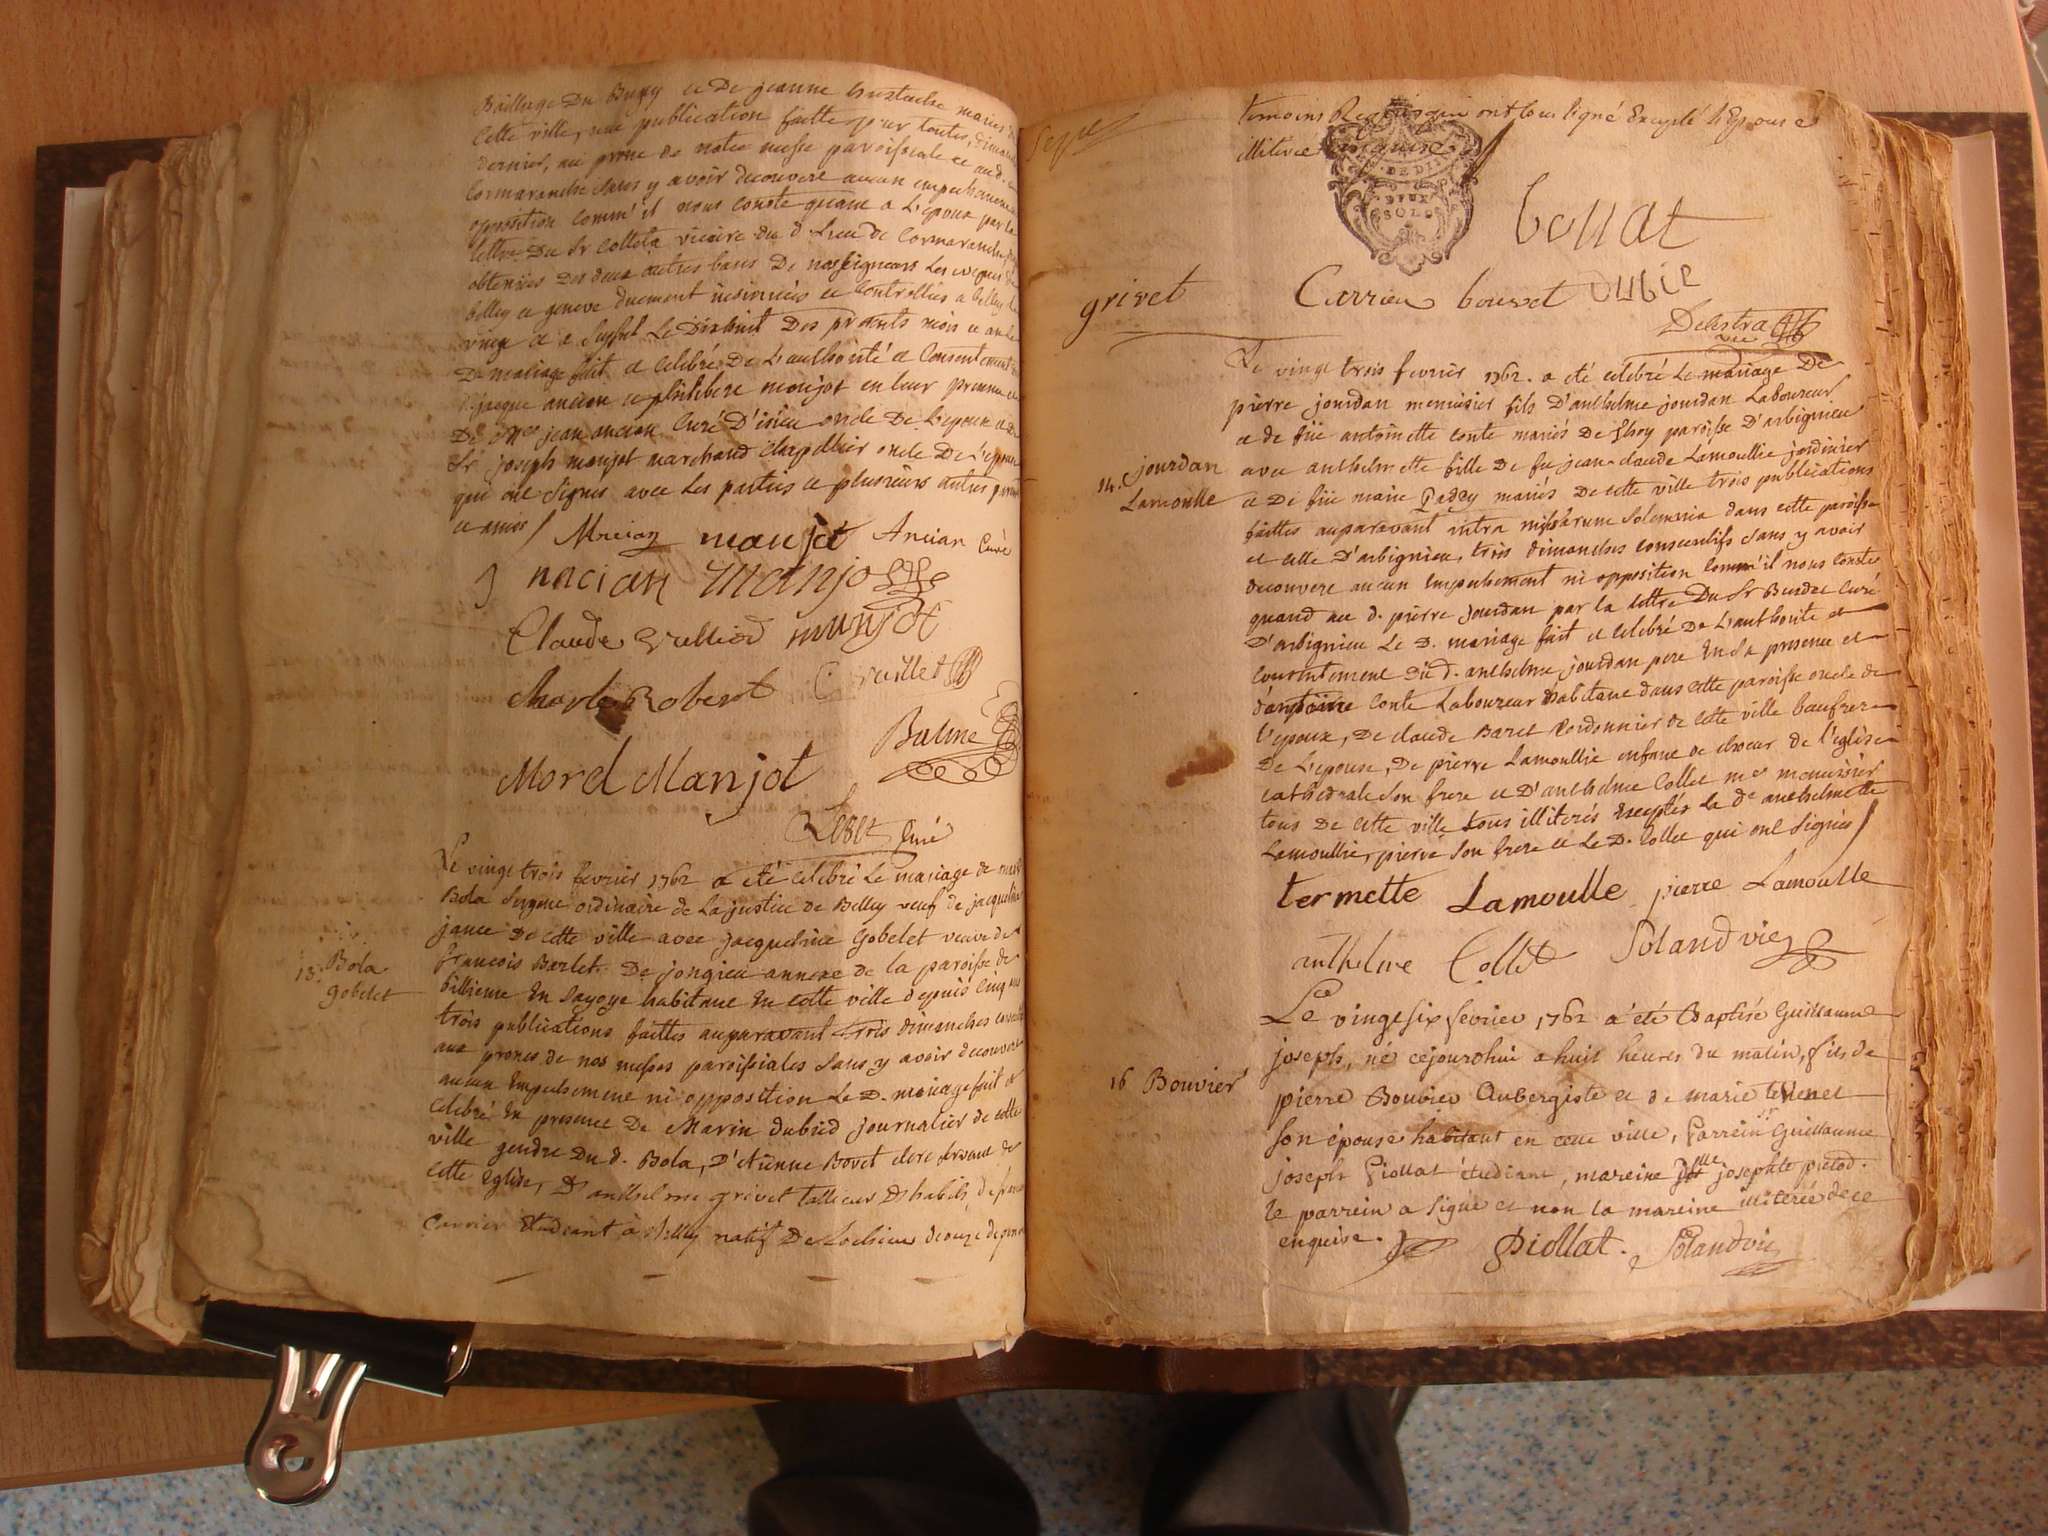 Bailliage Du Bugey et De jeanne mariés
Cette ville, une publication faitte pour toutes, dimanche
dernier, au prone de notre messe paroissiale et aud.
Cormaranche sans y avoir decouvert aucun empechement
opposition comm' il nous conste quant a L'epoux par la
lettre Du Sr vicaire du d. Lieu de Cormaranche
obtenües Des deux autres bans De nosseigneurs Les
belley et geneve duement insinuées et Controllées a belley
vingt et a Seyssel Le Dixhuit Des presents mois et an
De mariage fait et celebré De L'authorité et Consentement
jacque ancian et philibert monjot en leur presence
De jean ancian Curé D' oncle De L'epoux et De
Sr joseph monjot marchand Chapellier oncle De L'epouse
qui ont Signés avec Les parties et plusieurs autres parents
et amis /
Ancian manjot Ancian Curé
J nacian manjot
Claude manjot
Charle Robert
Balme
Morel Manjot
Curé
Le vingt trois fevrier 1762 a été celebré Le mariage de
Bola Sergent ordinaire de La justice de Belley veuf de jacqueline
janin De cette ville avec jacqueline Gobelet veuve de
francois Barlet De jongieu annexe de la paroisse de
billieme En Savoye habitant En cette ville depuis cinq ans
trois publications faittes auparavant trois dimanches
aux prones de nos messes paroissiales Sans y avoir decouvert
aucun Empechement ni opposition Le D. mariage fait et
celebré En presence De Marin dubié journalier de cette
ville gendre Du d. Bola, D'etienne Bovet clerc servant de
cette Eglise, D'anthelme grivet tallieur D'habits, de
Carrier Etudiant à Belley natif De Lochieu
13. Bola
gobelet
temoins Requis qui ont tous signé Excepté L'Epouse
illiterée enquise
DEUX
SOLS
bollat
grivet Carrier bouvet DUBIE
Delestra
vic
Le vingt trois fevrier 1762. a été celebré Le mariage De
pierre jourdan menuisier fils D'anthelme jourdan Laboureur
et de füe antoinette conte mariés De paroisse D'arbignieu
avec anthelmette fille De fu jean-claude Lamoullie jardinier
et De füe marie mariés De cette ville trois publications
faittes auparavant intra missarum Solemnia dans cette paroisse
et celle D'arbignieu, trois dimanches consecutifs Sans y avoir
decouvert aucun Empechement ni opposition Comm'il nous conste
quand au d. pierre jourdan par la lettre Du Sr Burdet Curé
D'arbignieu Le D. mariage fait et celebré De L'authorité et
consentement Du d. anthelme jourdan pere En Sa presence et
d'antoine Conte Laboureur habitant dans cette paroisse oncle de
l'epoux, De claude Baret Cordonnier de cette ville baufrere
De L'epouse, De pierre Lamoullie enfant de choeur de l'eglise
cathedrale Son frere et D'anthelme Collet me menuisier
tous De cette ville tous illiterés Exceptés La de anthelmette
Lamoullie, pierre Son frere et Le D. Collet qui ont Signés /
14. jourdan
Lamoulle
termette Lamoulle pierre Lamoulle
anthelme Collet Solandvie
Le vingt six fevrier 1762 a été Baptisé Guillaume
joseph, né cejourdhui a huit heures du matin, fils de
pierre Bouvier Aubergiste et de marie tevenet
son épouse habitant en cette ville, Parrein Guillaume
joseph Piollat étudiant, mareine Dlle josephte pictod.
le parrein a signé et non la mareine illiterée de ce
enquise. Piollat. Solandvic
16 Bouvier